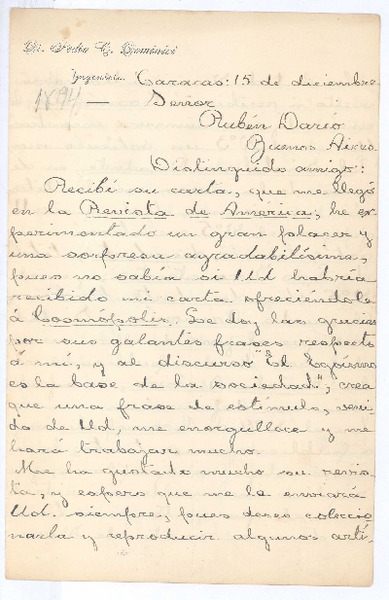 Dr. Pedro C. Dominici
Ingeniero.
Caracas: 15 de diciembre
1894 — Señor
Rubén Darío
Buenos Aires.
Distinguido amigo:
Recibí su carta, que me llegó
en la Revista de America; he ex
perimentado un gran placer y
una sorpresa agradabilísima,
pues no sabía si Ud habría
recibido mi carta ofreciéndole
á Cosmópolis. Le doy las gracias
por sus galantes frases respecto
á mí, y al discurso "El Egoismo
es la base de la sociedad", crea
que una frase de estímulo, veni
do de Ud, me enorgullece y me
hará trabajar mucho.
Me ha gustado mucho su revis
ta, y espero que me la enviará
Ud. siempre, pues deseo coleccio
narla y reproducir algunos artí-